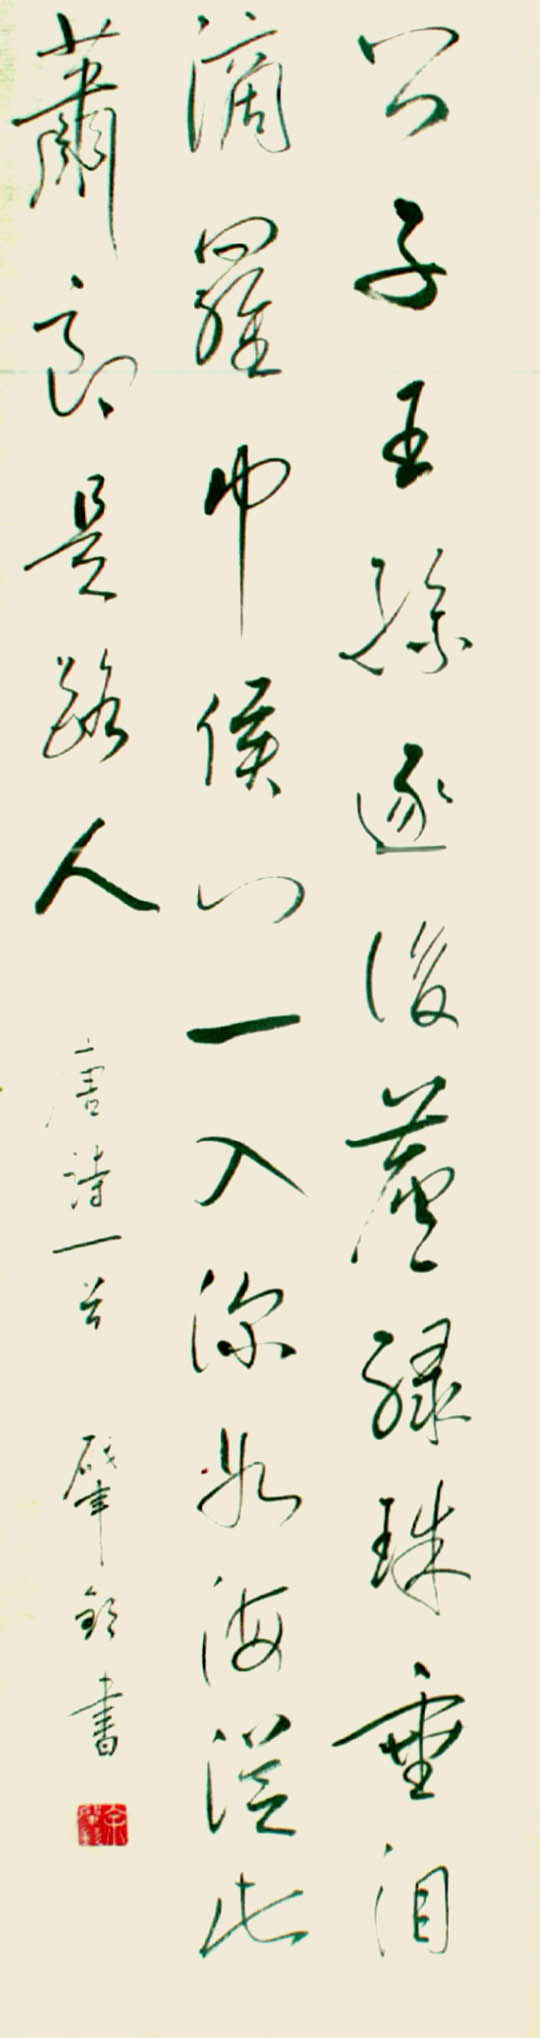 公子王孫逐後塵綠珠垂泪
滴羅巾侯门一入深如海從此
蕭郎是路人
唐詩一首
書